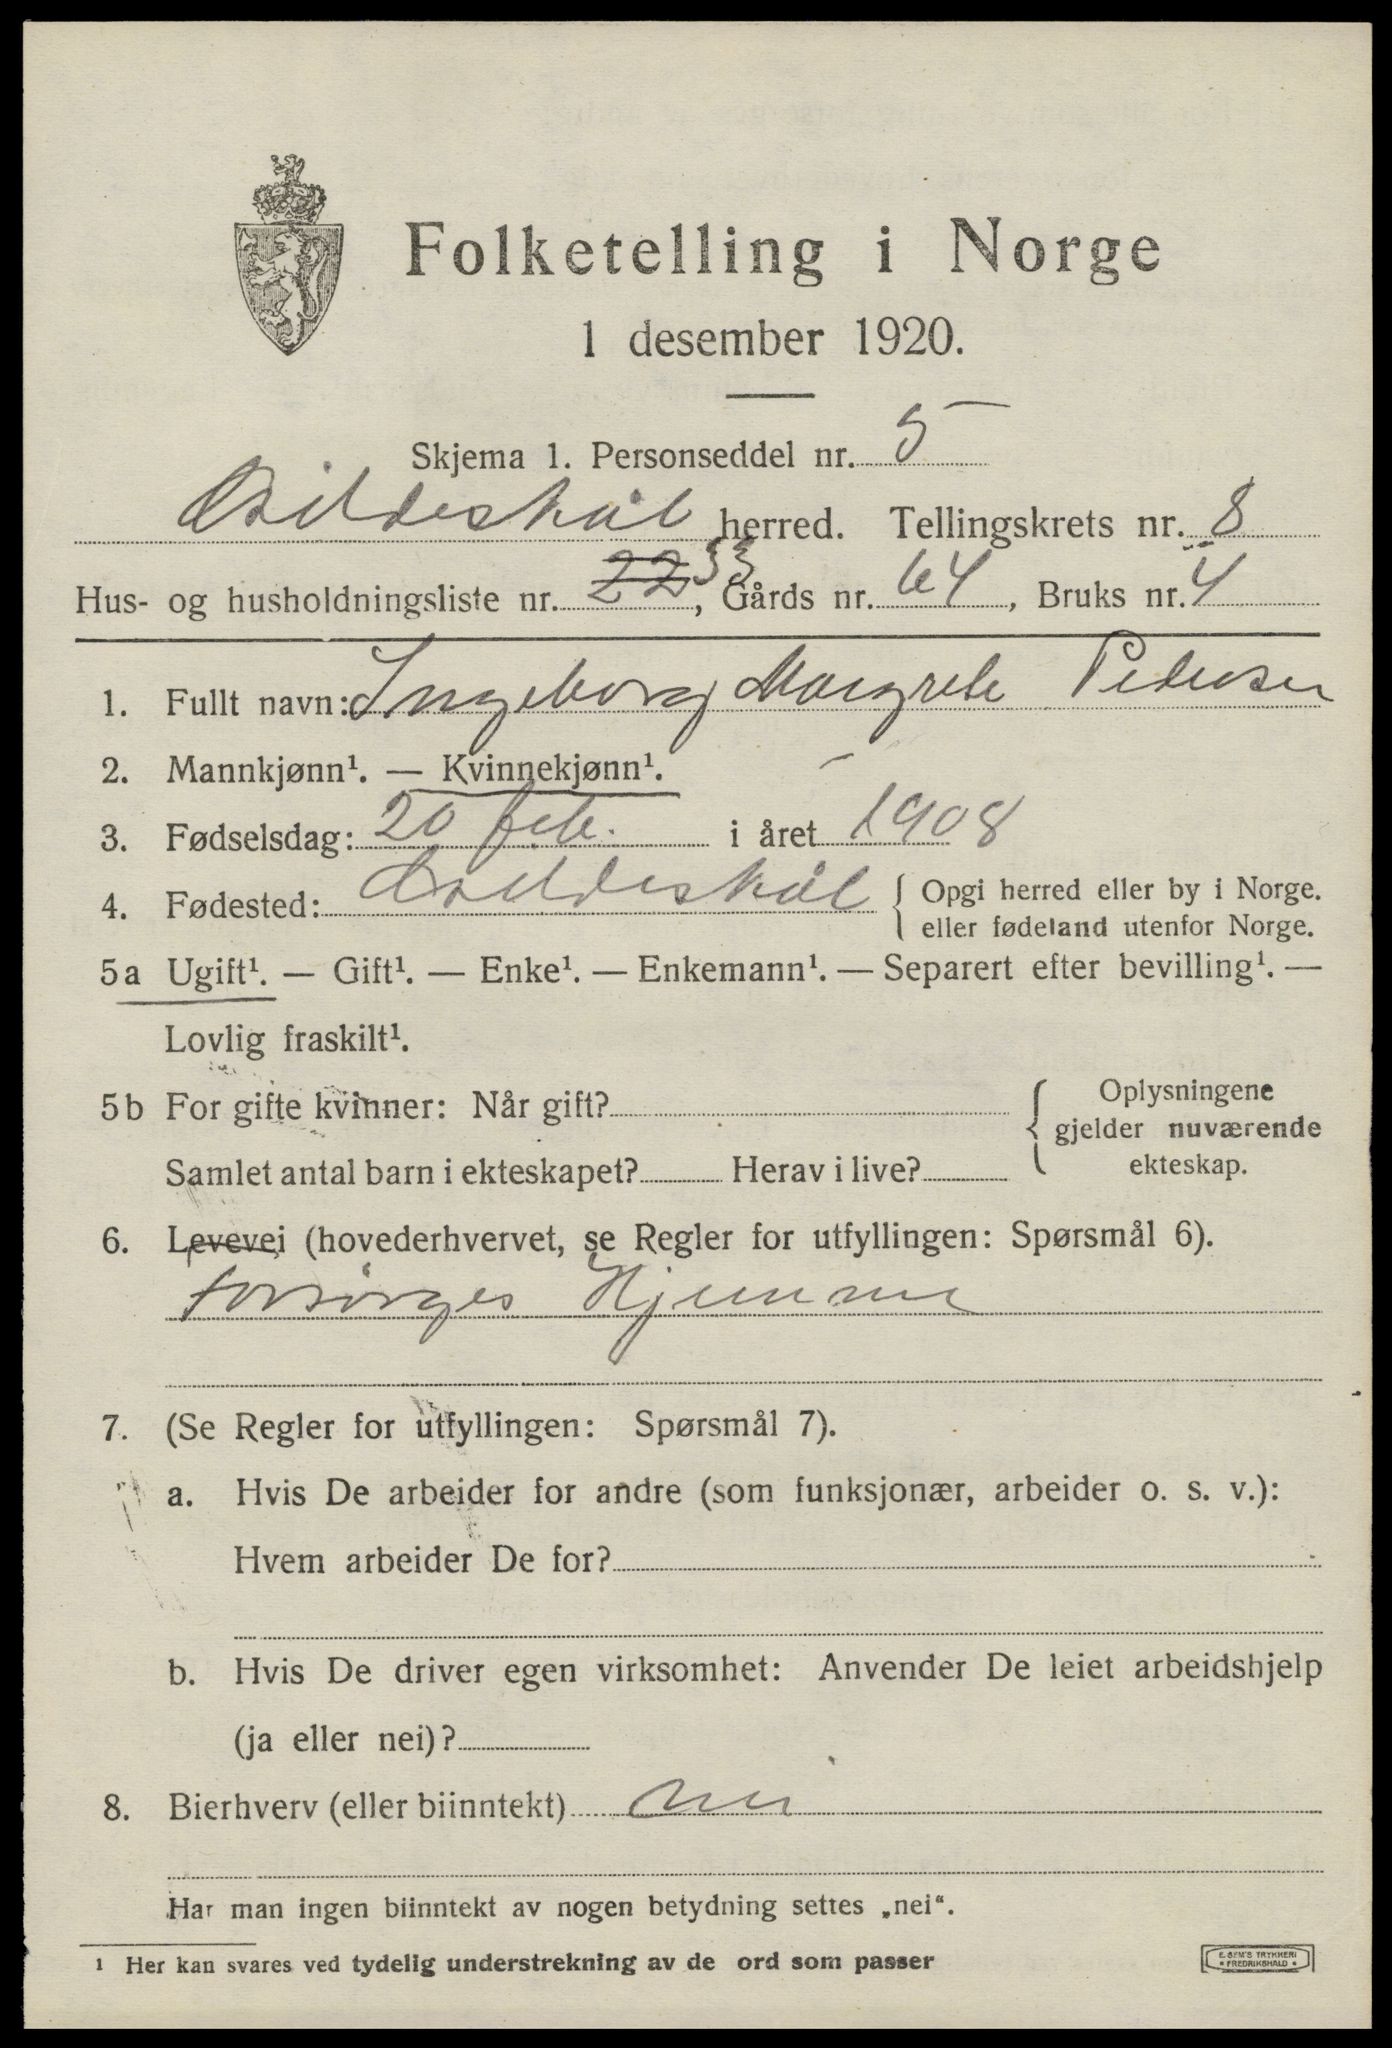 Folketelling i Norge
1 desember 1920.
Skjema 1. Personseddel nr. 5
Gildeskål herred. Tellingskrets nr. 8
Hus- og husholdningsliste nr. 22 33, Gårds nr. 64, Bruks nr. 4
1. Fullt navn: Ingeborg Margrete Pedersen
2. Mannkjønn¹. — Kvinnekjønn¹.
3. Fødselsdag: 20 feb. i året 1908
4. Fødested: Gildeskål { Opgi herred eller by i Norge.
eller fødeland utenfor Norge.
5a Ugift¹. — Gift¹. — Enke¹. — Enkemann¹. — Separert efter bevilling¹. —
Lovlig fraskilt¹.
5b For gifte kvinner: Når gift? { Oplysningene
gjelder nuværende
Samlet antal barn i ekteskapet? Herav i live? ekteskap.
6. Levevei (hovederhvervet, se Regler for utfyllingen: Spørsmål 6).
forsørges Hjemme
7. (Se Regler for utfyllingen: Spørsmål 7).
a. Hvis De arbeider for andre (som funksjonær, arbeider o. s. v.):
Hvem arbeider De for?
b. Hvis De driver egen virksomhet: Anvender De leiet arbeidshjelp
(ja eller nei)?
8. Bierhverv (eller biinntekt) nei
Har man ingen biinntekt av nogen betydning settes „nei“.
¹ Her kan svares ved tydelig understrekning av de ord som passer
E. SEM'S TRYKKERI
• FREDRIKSHALD •